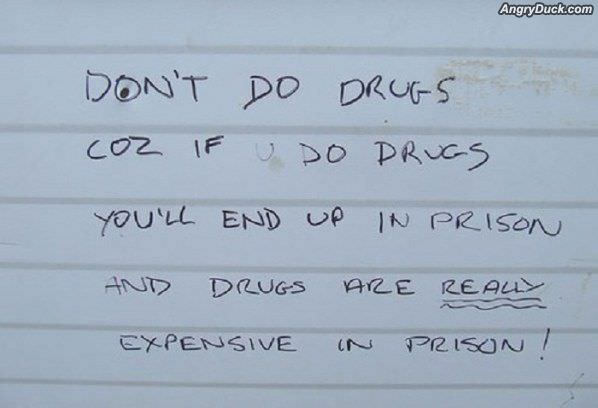 AngryDuck.com
DON'T DO DRUGS
COZ IF U DO DRUGS
YOU'LL END UP IN PRISON
AND DRUGS ARE REALLY
EXPENSIVE IN PRISON!